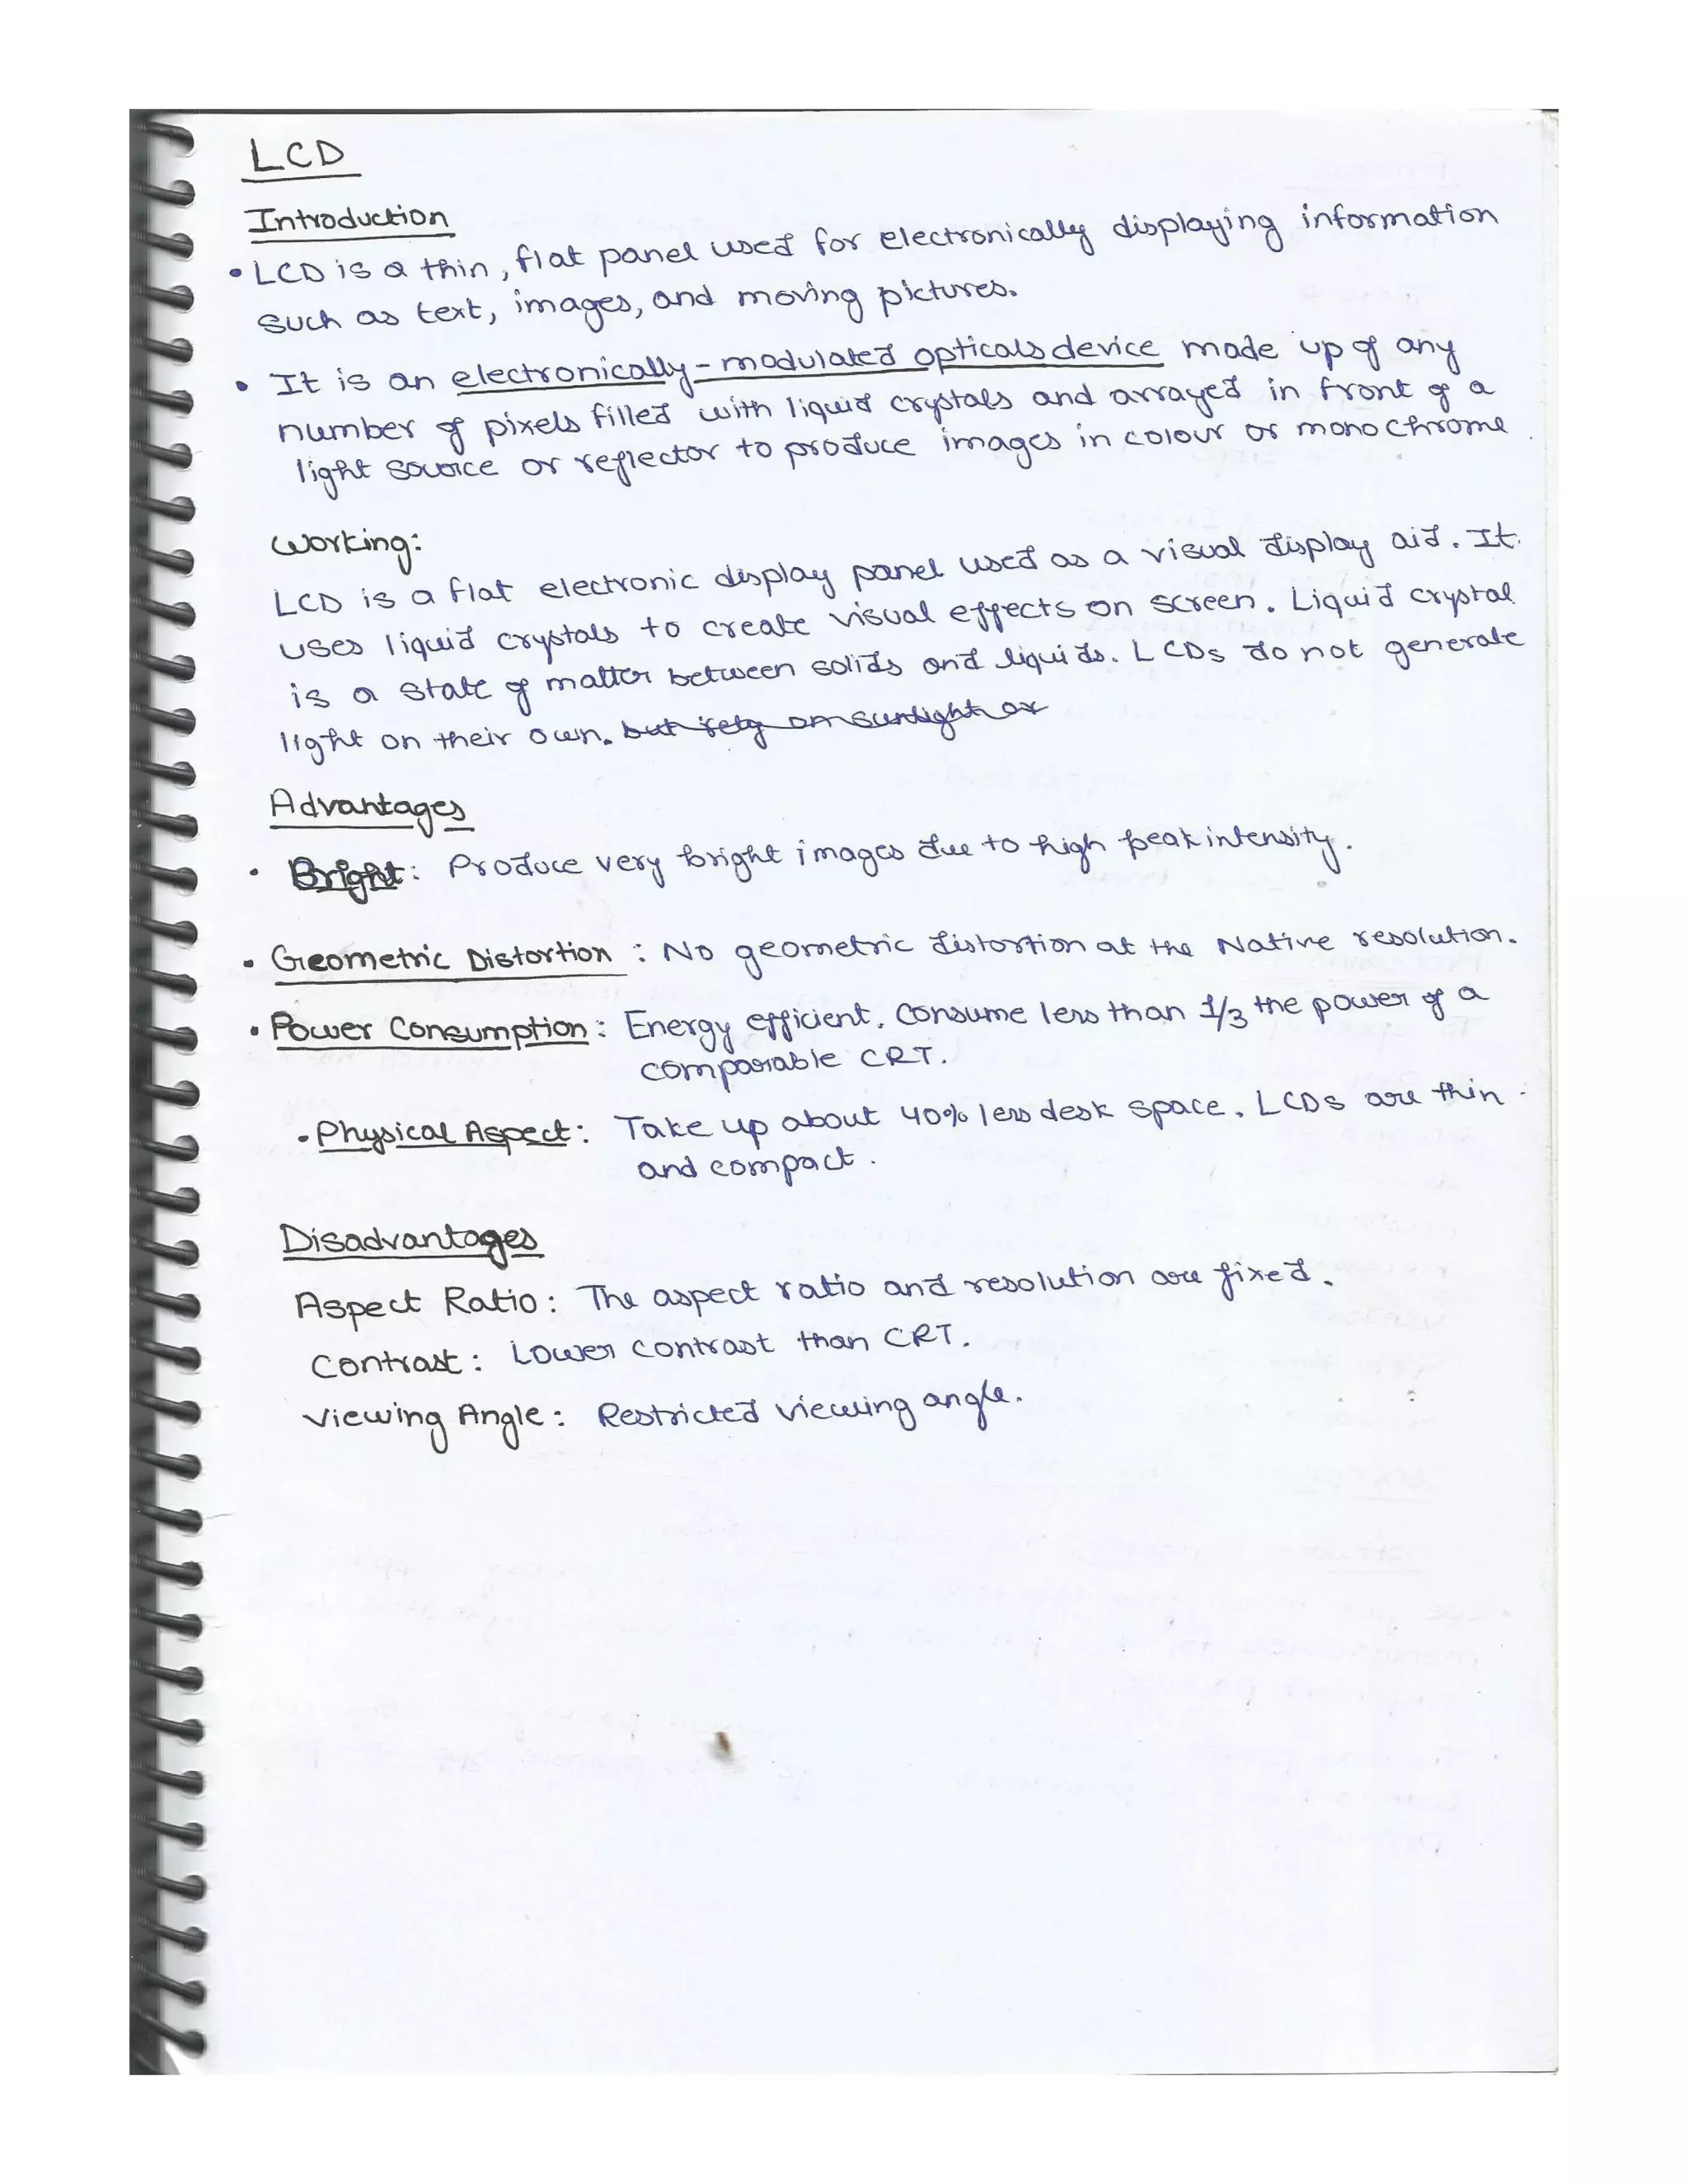 LCD
Introduction
• LCD is a thin, flat panel used for electronically displaying information
such as text, images, and moving pictures.
• It is an electronically-modulated opticals device made up of any
number of pixels filled with liquid crystals and arrayed in front of a
light source or reflector to produce images in colour or monochrome.
Working:
LCD is a flat electronic display panel used as a visual display aid. It
uses liquid crystals to create visual effects on screen. Liquid crystal
is a state of matter between solids and liquids. LCDs do not generate
light on their own. but rely on sunlight or
Advantages
• Bright: Produce very bright images due to high peak intensity.
• Geometric Distortion : No geometric distortion at the Native resolution.
• Power Consumption: Energy efficient. Consume less than 1/3 the power of a
comparable CRT.
• Physical Aspect: Take up about 40% less desk space. LCDs are thin
and compact.
Disadvantages
Aspect Ratio: The aspect ratio and resolution are fixed.
Contrast: Lower contrast than CRT.
Viewing Angle: Restricted viewing angle.